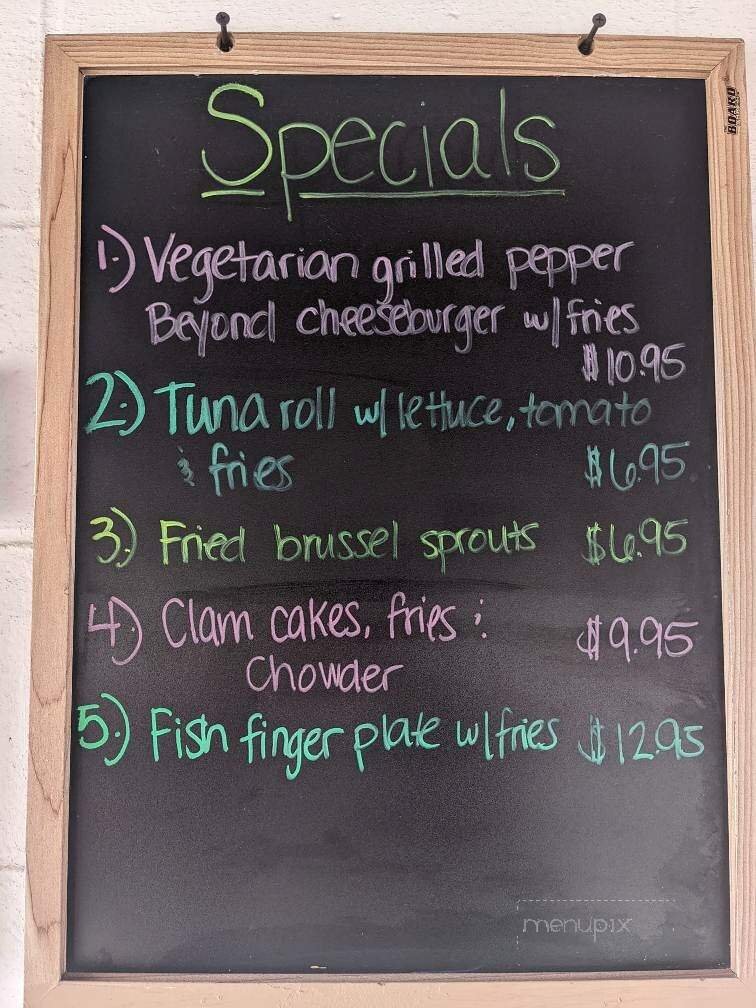 Specials
1.) Vegetarian grilled pepper
Beyond cheeseburger w/ fries
$10.95
2.) Tuna roll w/ lettuce, tomato
& fries $6.95
3.) Fried brussel sprouts $6.95
4.) Clam cakes, fries & $9.95
Chowder
5.) Fish finger plate w/ fries $12.95
BOARD
menupix